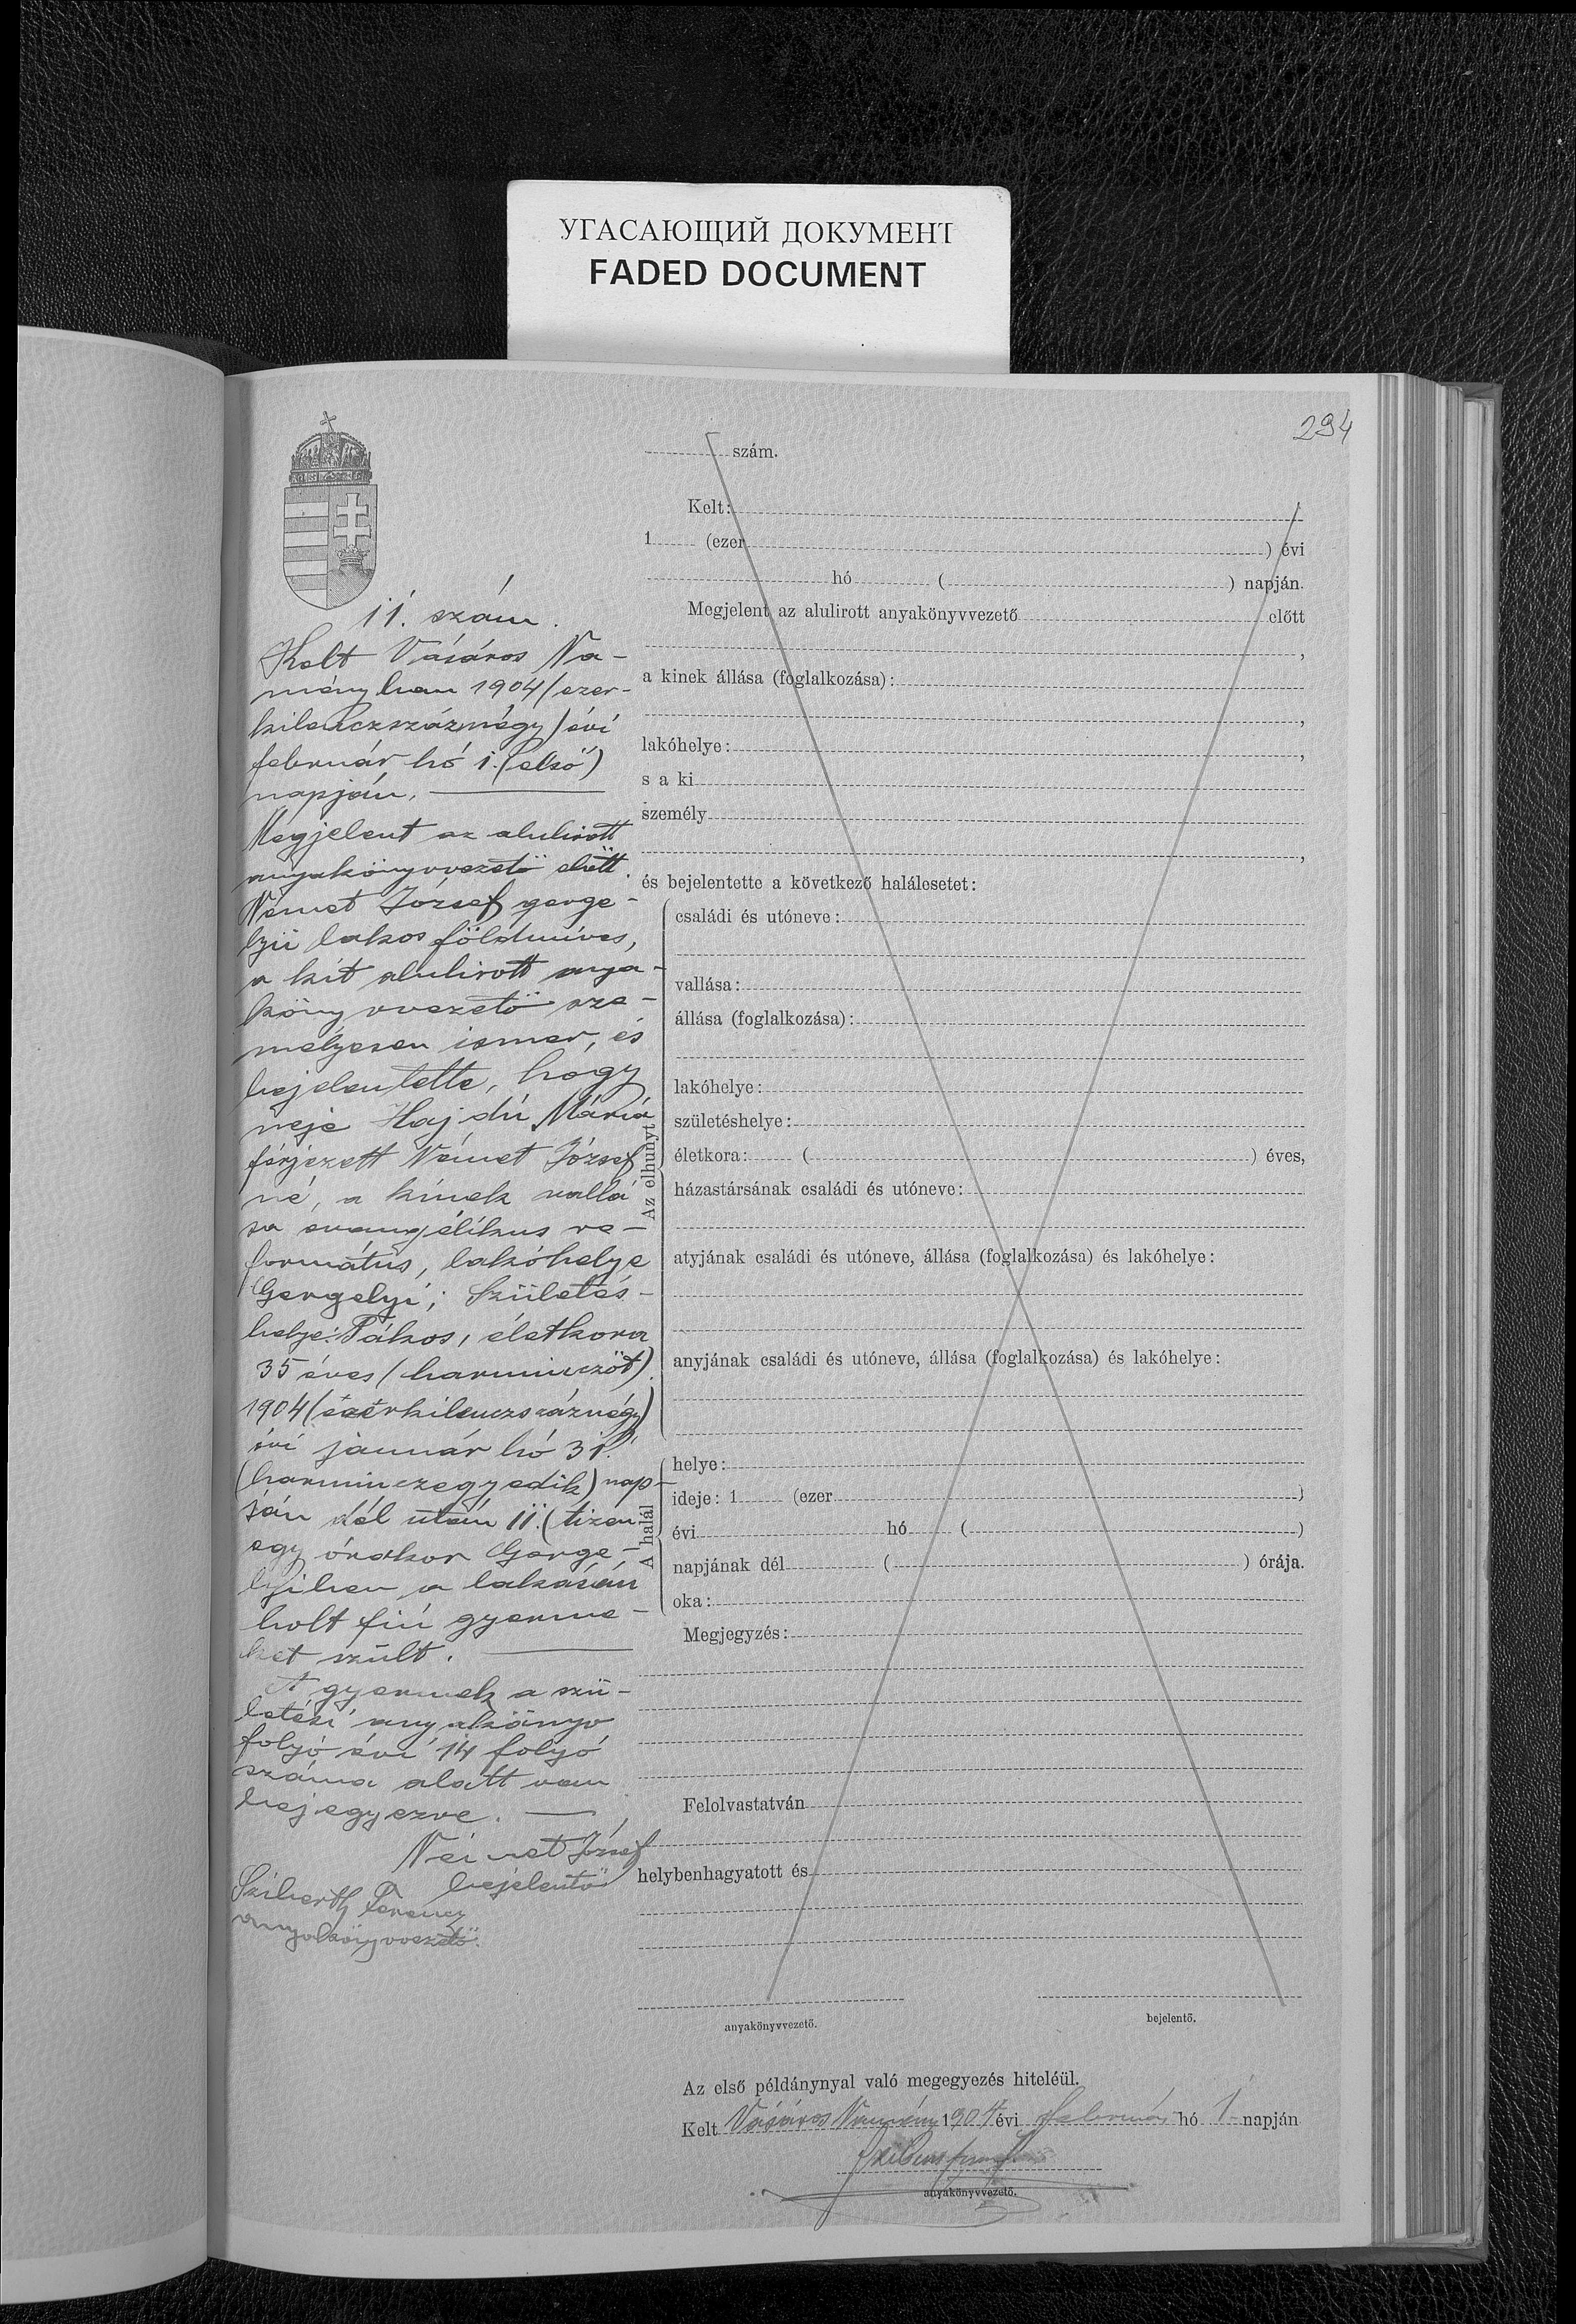 УГАСАЮЩИЙ ДОКУМЕНТ
FADED DOCUMENT
294
11. szám.
Kelt Vásáros Na-
ményban 1904 (ezer-
kilenczszáznégy) évi
február hó 1. (első)
napján.
Megjelent az alulirott
anyakönyvvezető előtt
Német József gerge-
lyii lakos földmíves,
a kit alulirott anya-
könyvvezető sze-
mélyesen ismer, és
bejelentette, hogy
neje Hajdú Mária
férjezett Német József
né, a kinek vallá
sa evangélikus re-
formátus, lakóhelye
Gergelyi; Születés-
helye: Tákos, életkora
35 éves (harminczöt)
1904 (ezerkilenczszáznégy)
évi január hó 31.
(harminczegyedik) nap-
ján dél után 11. (tizen
egy órakor Gerge-
lyiben a lakásán
holt fiú gyerme-
ket szült.
A gyermek a szü-
letési anyakönyv
folyó évi 14 folyó
száma alatt van
bejegyezve.
Német József
bejelentő
Ferencz
anyakönyvvezető.
szám.
Kelt:
1 (ezer ) évi
hó ( ) napján.
Megjelent az alulirott anyakönyvvezető előtt
,
a kinek állása (foglalkozása):
,
lakóhelye: ,
s a ki
személy
,
és bejelentette a következő halálesetet:
Az elhunyt
családi és utóneve:
vallása:
állása (foglalkozása):
lakóhelye:
születéshelye:
életkora: ( ) éves,
házastársának családi és utóneve:
atyjának családi és utóneve, állása (foglalkozása) és lakóhelye:
anyjának családi és utóneve, állása (foglalkozása) és lakóhelye:
A halál
helye:
ideje: 1 (ezer )
évi hó ( )
napjának dél ( ) órája.
oka:
Megjegyzés:
Felolvastatván
helybenhagyatott és
anyakönyvvezető.
bejelentő.
Az első példánynyal való megegyezés hiteléül.
Kelt Vásáros Namény 1904 évi február hó 1 napján
anyakönyvvezető.